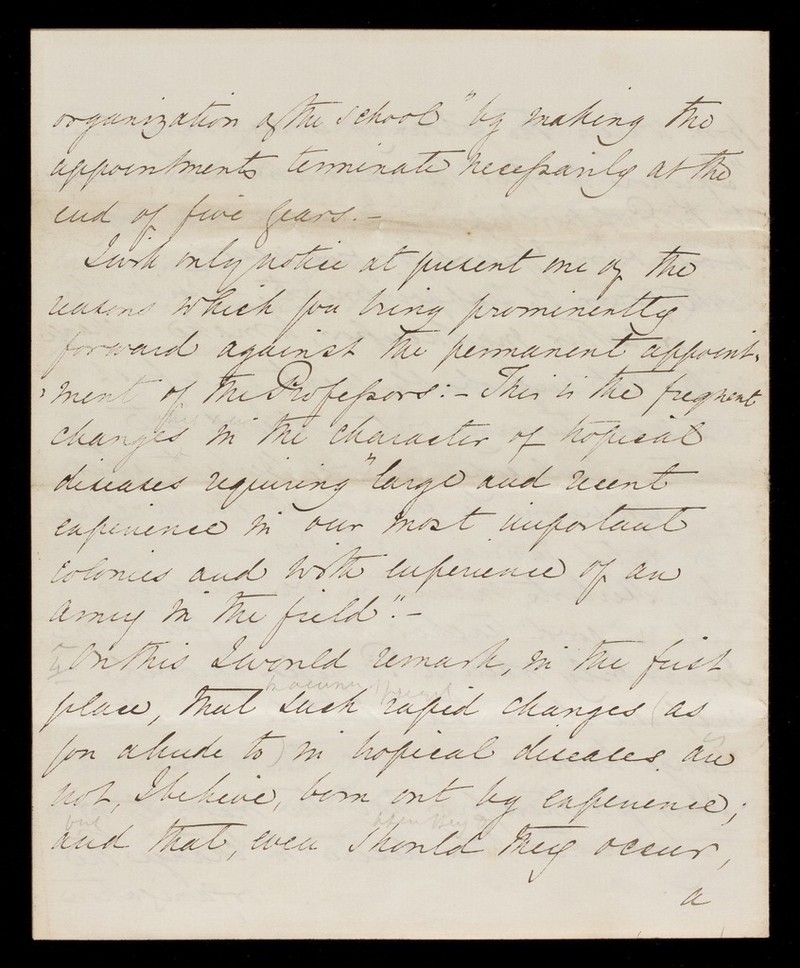 organization of the school" by making the
appointments terminate necessarily at the
end of five years.-
I wish only notice at present one of the
reasons which you bring prominently
forward against the permanent appoint-
-ment of the Professors:- This is the frequent
changes in the character of tropical
diseases requiring "large and recent
experience in our most important
colonies and with experience of an
army in the field".-
On this I would remark, in the first
place, that such rapid changes (as
you allude to) in tropical diseases are
not, I believe, born out by experience;
but
and that, even should they occur,
a